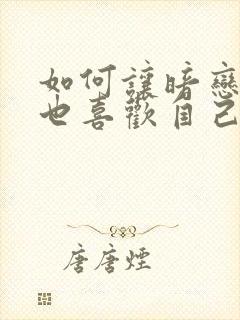 如何讓暗戀
也喜歡自己
唐唐煙